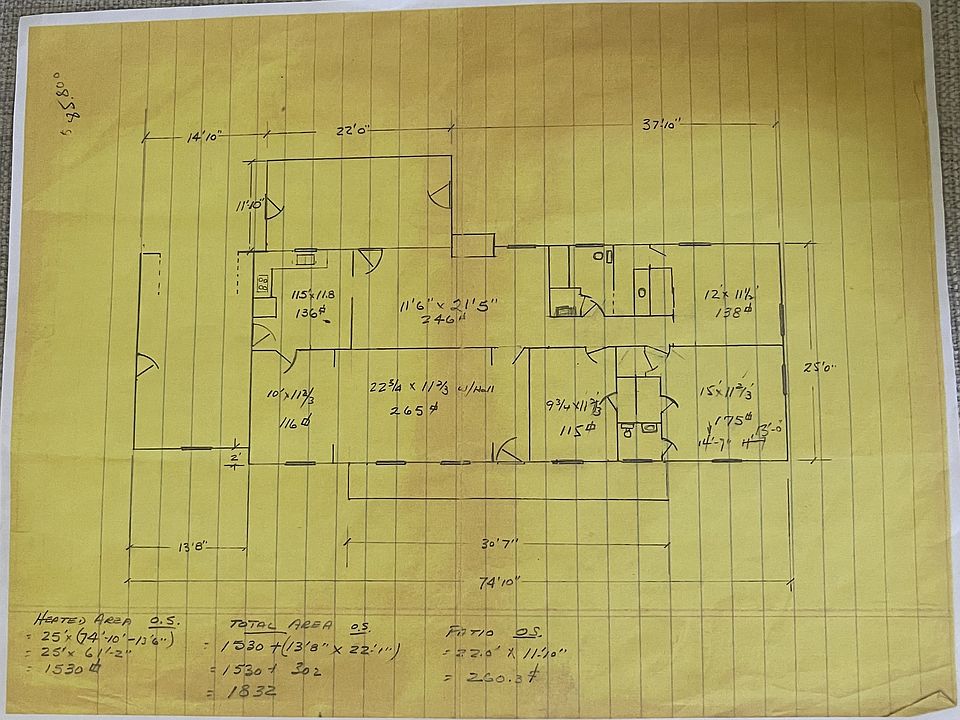 5.85.80°
14'10"
22'0"
37'10"
11'-10"
11'5"x11.8
136⌗
11'6" x 21'5"
246⌗
12' x 11½'
138⌗
25'0"
10' x 11⅔
116⌗
22¾ x 11⅔ w/Hall
265⌗
9¾ x 11⅔
115⌗
15' x 11⅔'
175⌗
14'-7"
13'-0"
2'
13'8"
30'7"
74'10"
HEATED AREA O.S.
= 25' x (74'-10" - 13'6")
= 25' x 61'-2"
= 1530⌗
TOTAL AREA O.S.
= 1530 + (13'8" x 22'1")
= 1530 + 302
= 1832
PATIO O.S.
= 22.0' x 11'-10"
= 260.3⌗